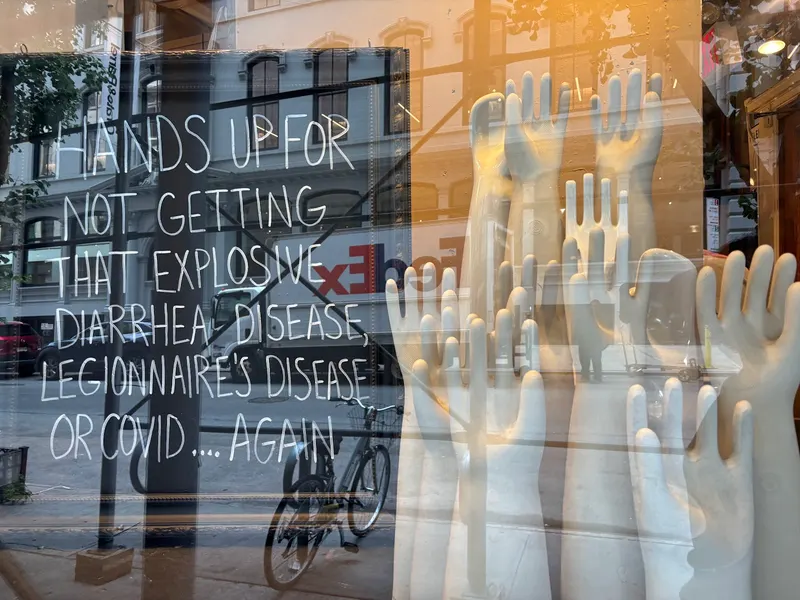 HANDS UP FOR
NOT GETTING
THAT EXPLOSIVE
DIARRHEA DISEASE,
LEGIONNAIRE'S DISEASE
OR COVID.... AGAIN
FedEx